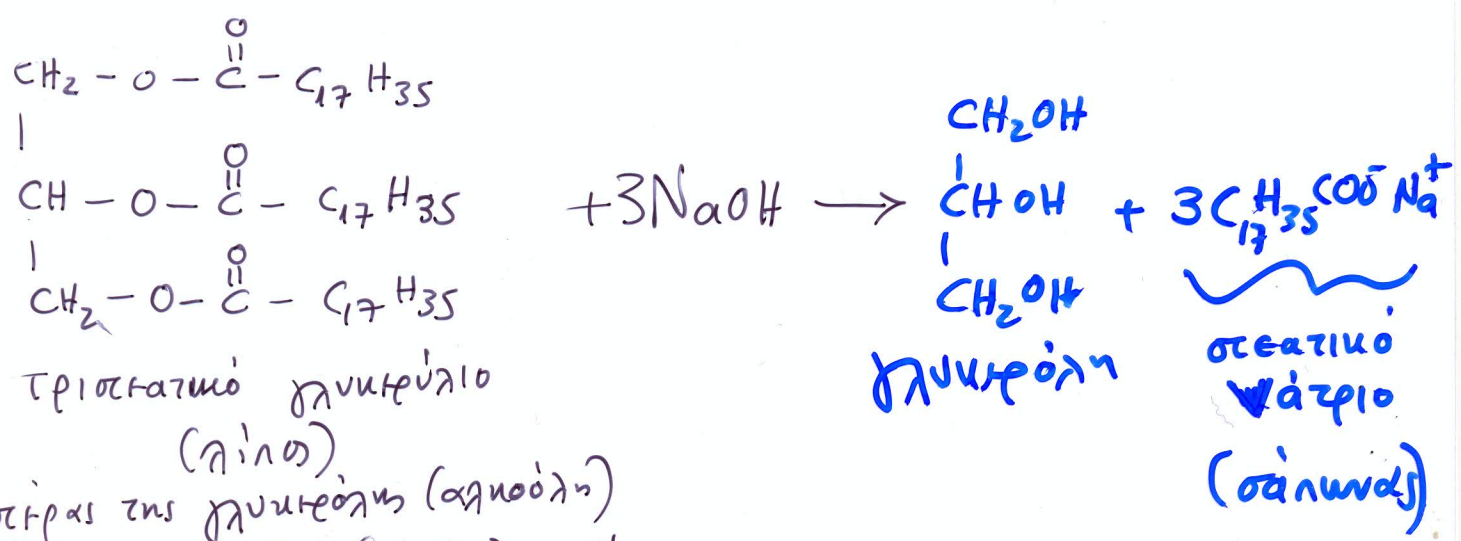 O
||
CH₂ – O – C – C₁₇H₃₅
|
O
||
CH – O – C – C₁₇H₃₅
|
O
||
CH₂ – O – C – C₁₇H₃₅
+3NaOH →
CH₂OH
|
CHOH
|
CH₂OH
+ 3C₁₇H₃₅COO⁻Na⁺
τριστεατικό γλυκερύλιο
(λίπος)
της γλυκερόλης (αλκοόλη)
γλυκερόλη
στεατικό
νάτριο
(σάπωνας)